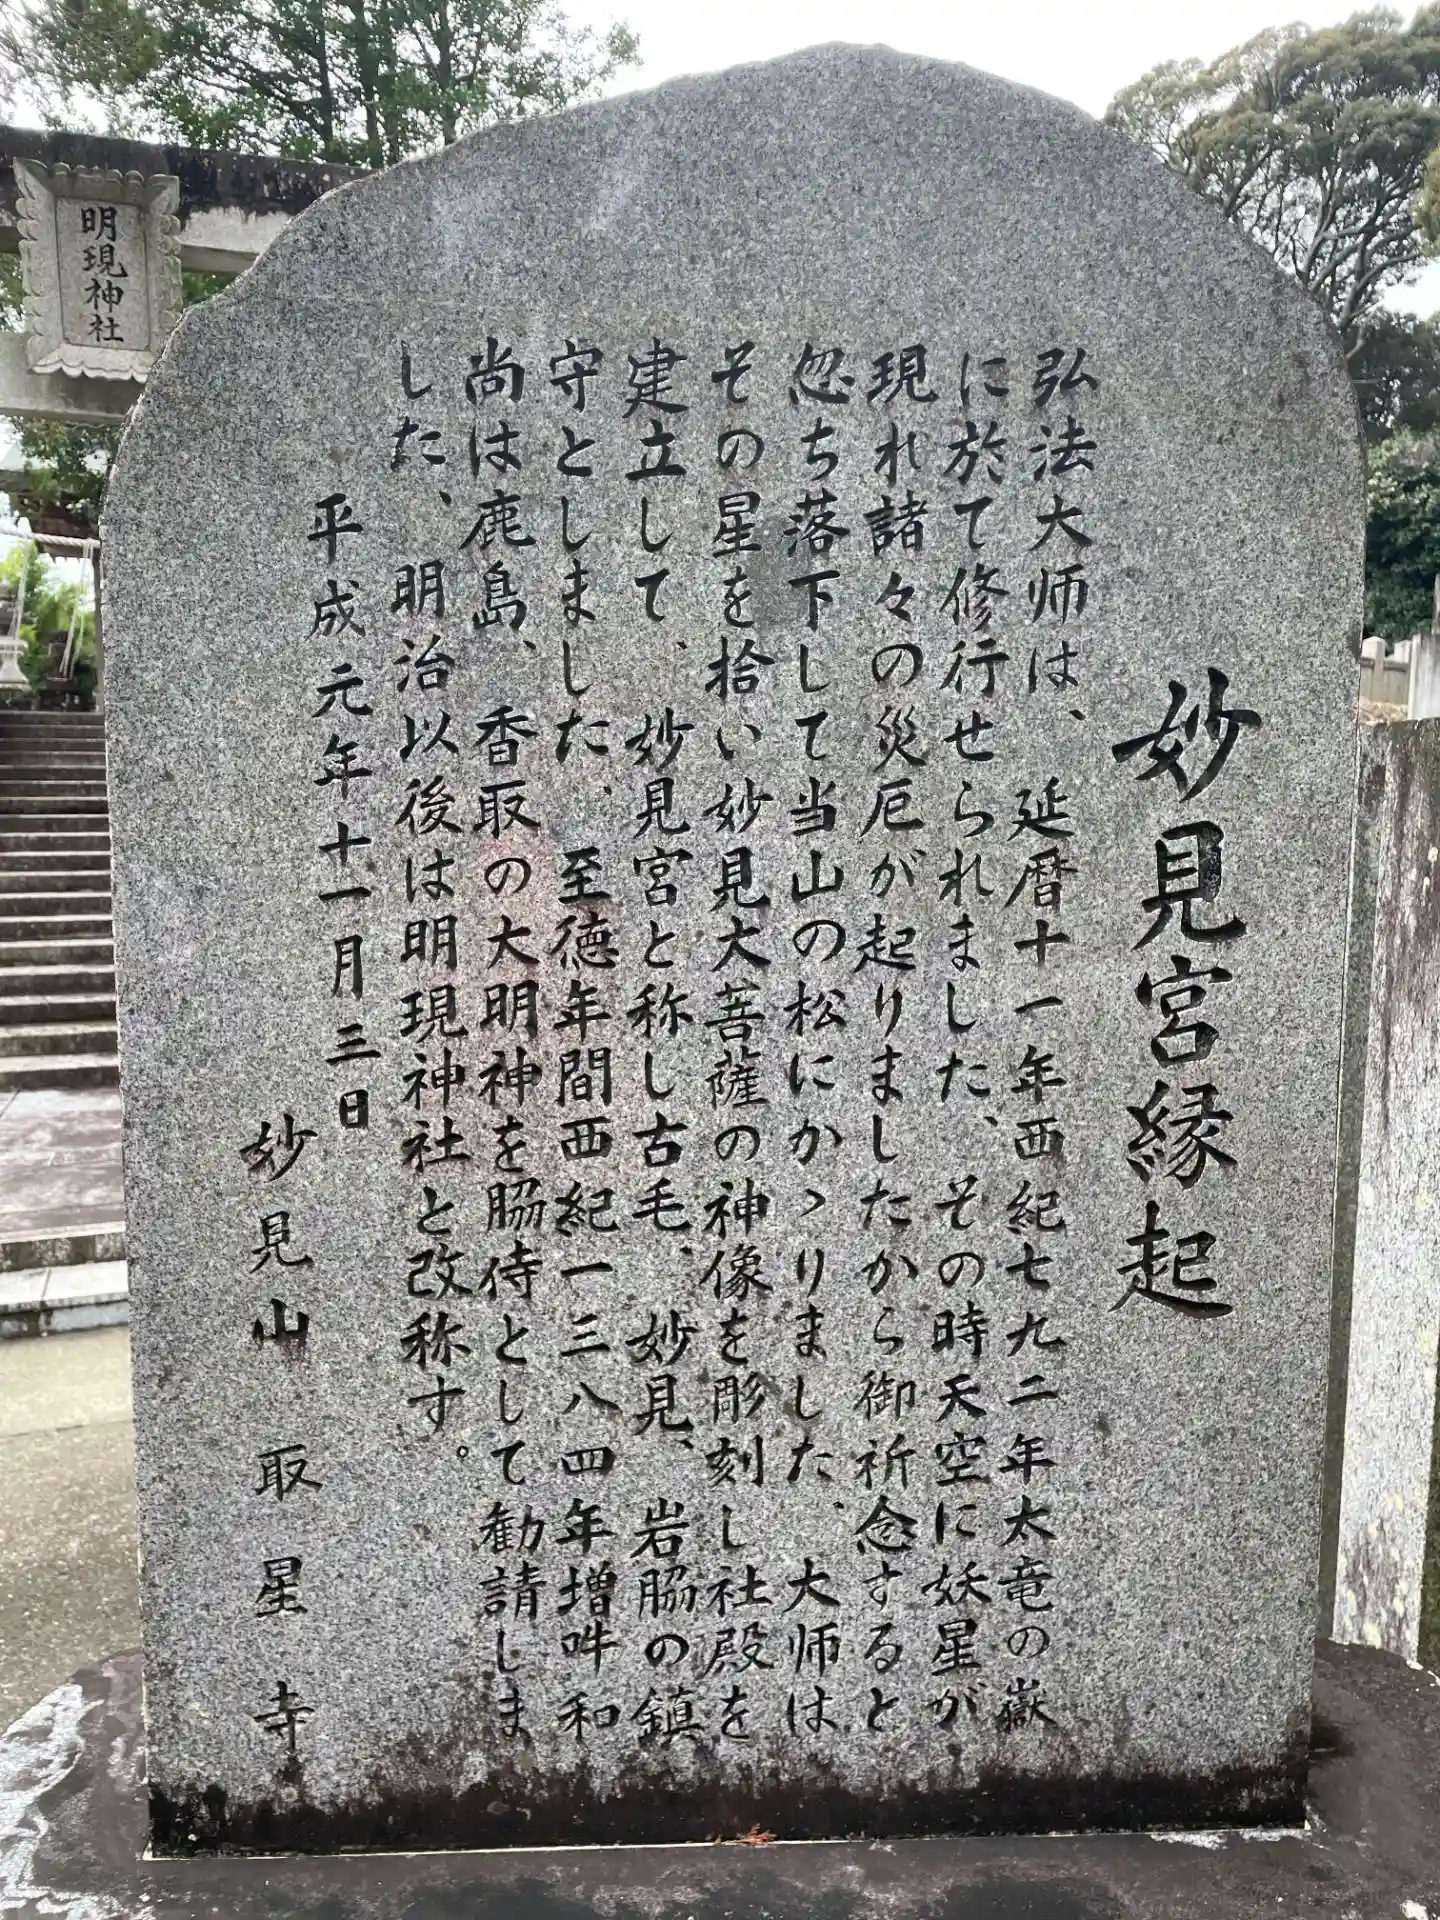 妙見宮縁起
弘法大师は、延暦十一年西紀七九二年太竜の嶽
に於て修行せられました、その時天空に妖星が
現れ諸々の災厄が起りましたから御祈念すると
忽ち落下して当山の松にかゝりました、大师は
その星を拾い妙見大菩薩の神像を彫刻し社殿を
建立して、妙見宮と称し古毛、妙見、岩脇の鎮
守としました、至徳年間西紀一三八四年増吽和
尚は鹿島、香取の大明神を脇侍として勧請しま
した、明治以後は明現神社と改称す。
平成元年十一月三日
妙見山 取星寺
明現神社